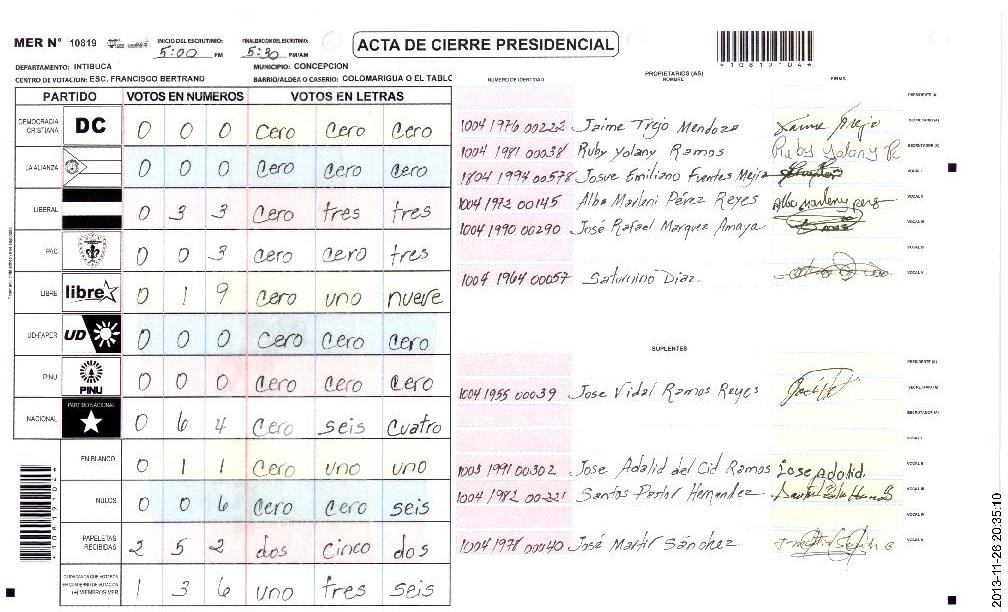 MER Nº 10819 INICIO DEL ESCRUTINIO: 5:00 PM FINALIZACION DEL ESCRUTINIO: 5:30 PM/AM ACTA DE CIERRE PRESIDENCIAL
*108191044*
DEPARTAMENTO: INTIBUCA MUNICIPIO: CONCEPCION
CENTRO DE VOTACION: ESC. FRANCISCO BERTRAND BARRIO/ALDEA O CASERIO: COLOMARIGUA O EL TABLO
PARTIDO VOTOS EN NUMEROS VOTOS EN LETRAS
DEMOCRACIA CRISTIANA DC 0 0 0 cero cero cero
LA ALIANZA 0 0 0 cero cero cero
LIBERAL 0 3 3 cero tres tres
PAC 0 0 3 cero cero tres
LIBRE libre 0 1 9 cero uno nueve
UD-FAPER UD 0 0 0 cero cero cero
PINU PINU 0 0 0 cero cero cero
NACIONAL PARTIDO NACIONAL 0 6 4 cero seis cuatro
EN BLANCO 0 1 1 cero uno uno
NULOS 0 0 6 cero cero seis
PAPELETAS RECIBIDAS 2 5 2 dos cinco dos
CIUDADANOS QUE VOTARON EN CUADERNO DE VOTACION (+) MIEMBROS MER 1 3 6 uno tres seis
*108191044*
PROPIETARIOS (AS)
NUMERO DE IDENTIDAD NOMBRE FIRMA
PRESIDENTE (A)
1004 1976 00222 Jaime Trejo Mendoza Jaime Trejo SECRETARIO (A)
1004 1981 00038 Ruby Yolany Ramos Ruby Yolany R ESCRUTADOR (A)
1804 1994 00578 Josue Emiliano Fuentes Mejia VOCAL I
1004 1972 00145 Alba Marleni Pérez Reyes Alba Marleny perez VOCAL II
1004 1990 00290 José Rafael Marquez Amaya VOCAL III
VOCAL IV
1004 1964 00057 Saturnino Diaz VOCAL V
SUPLENTES
PRESIDENTE (A)
1004 1955 00039 Jose Vidal Ramos Reyes SECRETARIO (A)
ESCRUTADOR (A)
VOCAL I
1003 1991 00302 Jose Adalid del Cid Ramos Jose Adalid. VOCAL II
1004 1982 00221 Santos Pastor Hernandez VOCAL III
VOCAL IV
1004 1978 00140 José Martir Sánchez VOCAL V
2013-11-26 20:35:10